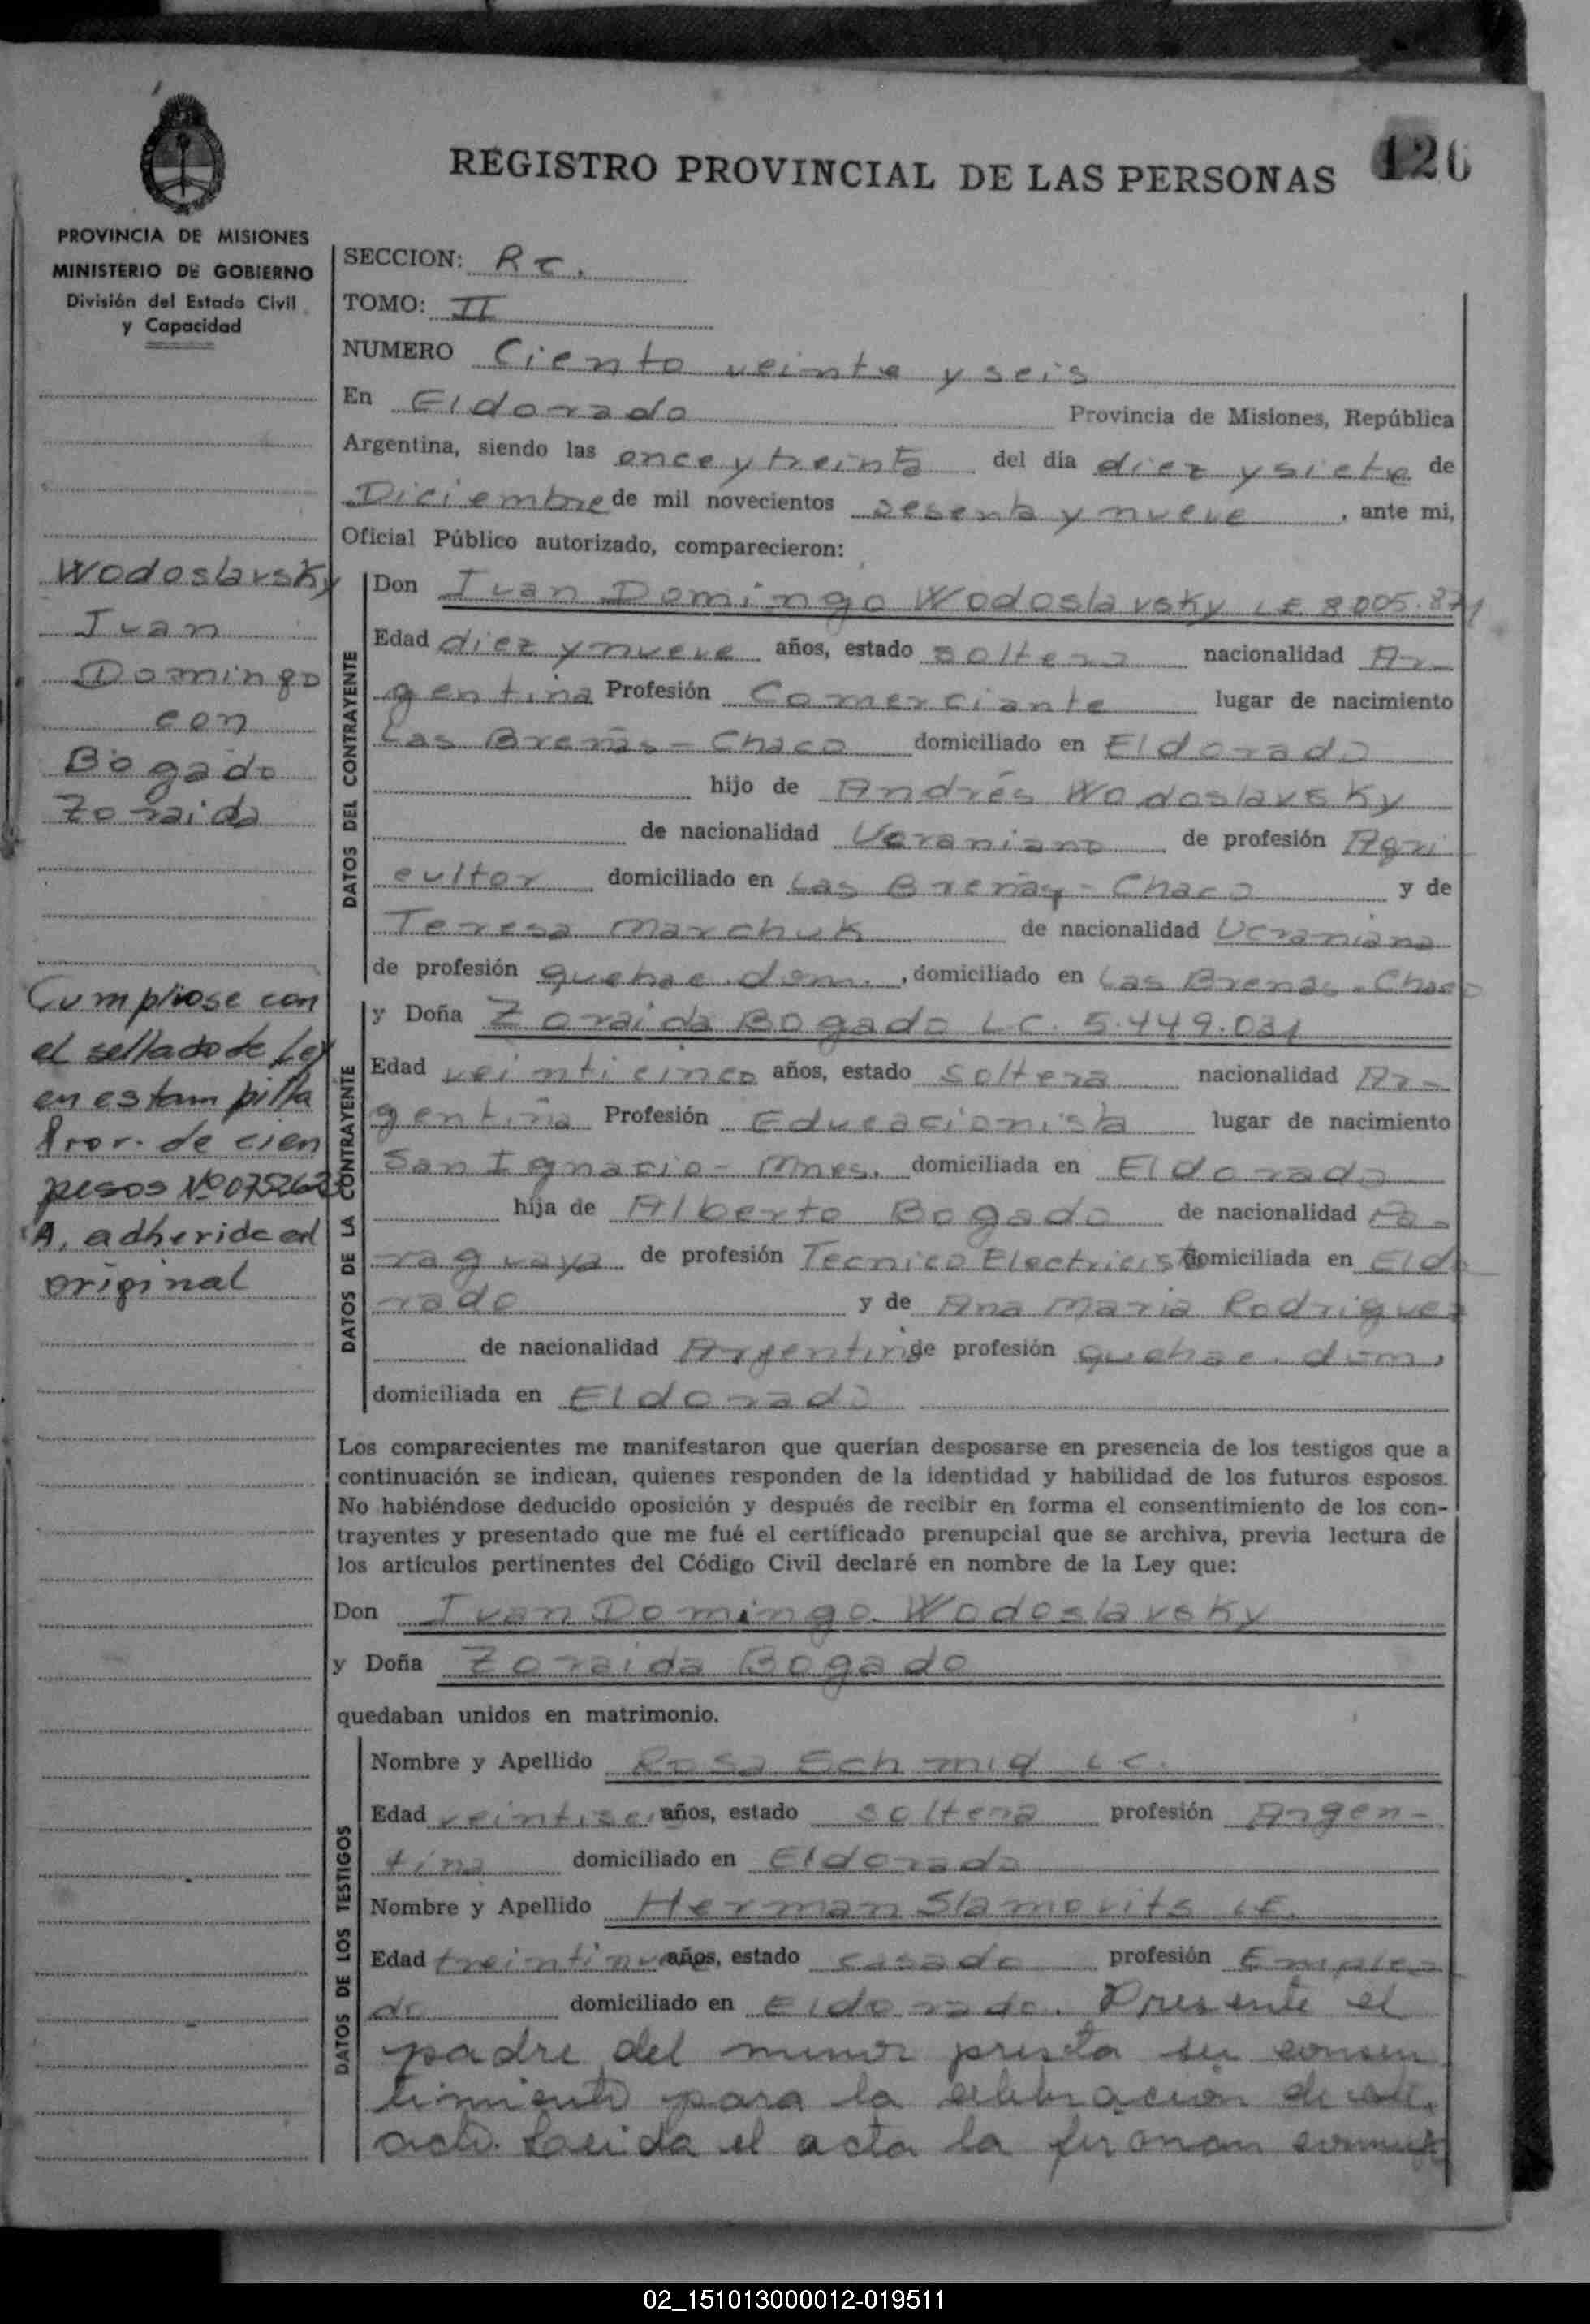 REGISTRO PROVINCIAL DE LAS PERSONAS
126
PROVINCIA DE MISIONES
MINISTERIO DE GOBIERNO
División del Estado Civil
y Capacidad
Wodoslavsky
Ivan
Domingo
con
Bogado
Zoraida
Cumpliose con
el sellado de Ley
en estampilla
Prov. de cien
pesos Nº 075262
A, adherida en
original
SECCION: Rc.
TOMO: II
NUMERO Ciento veinte y seis
En Eldorado Provincia de Misiones, República
Argentina, siendo las once y treinta del día diez y siete de
Diciembre de mil novecientos sesenta y nueve, ante mi,
Oficial Público autorizado, comparecieron:
DATOS DEL CONTRAYENTE
Don Ivan Domingo Wodoslavsky L E 8.005.871
Edad diez y nueve años, estado soltero nacionalidad Ar-
gentina Profesión Comerciante lugar de nacimiento
Las Breñas - Chaco domiciliado en Eldorado
hijo de Andrés Wodoslavsky
de nacionalidad Ucraniano de profesión Agri
cultor domiciliado en Las Breñas - Chaco y de
Teresa Marchuk de nacionalidad Ucraniana
de profesión quehac. dom., domiciliado en Las Breñas - Chaco
DATOS DE LA CONTRAYENTE
y Doña Zoraida Bogado L.C. 5.449.031
Edad veinticinco años, estado soltera nacionalidad Ar-
gentina Profesión Educacionista lugar de nacimiento
San Ignacio - Mnes. domiciliada en Eldorado
hija de Alberto Bogado de nacionalidad Pa-
raguaya de profesión Tecnico Electricista domiciliada en Eldo
rado y de Ana Maria Rodriguez
de nacionalidad Argentina de profesión quehac. dom,
domiciliada en Eldorado
Los comparecientes me manifestaron que querían desposarse en presencia de los testigos que a
continuación se indican, quienes responden de la identidad y habilidad de los futuros esposos.
No habiéndose deducido oposición y después de recibir en forma el consentimiento de los con-
trayentes y presentado que me fué el certificado prenupcial que se archiva, previa lectura de
los artículos pertinentes del Código Civil declaré en nombre de la Ley que:
Don Ivan Domingo Wodoslavsky
y Doña Zoraida Bogado
quedaban unidos en matrimonio.
DATOS DE LOS TESTIGOS
Nombre y Apellido Rosa Schmid L C.
Edad veintiseis años, estado soltera profesión Argen-
tina domiciliado en Eldorado
Nombre y Apellido Herman Slamovits LE.
Edad treintinueve años, estado casado profesión Emplea
do domiciliado en Eldorado. Presente el
padre del menor presta su consen
timiento para la celebración de este
acto. Leida el acta la firman conmigo
02_151013000012-019511